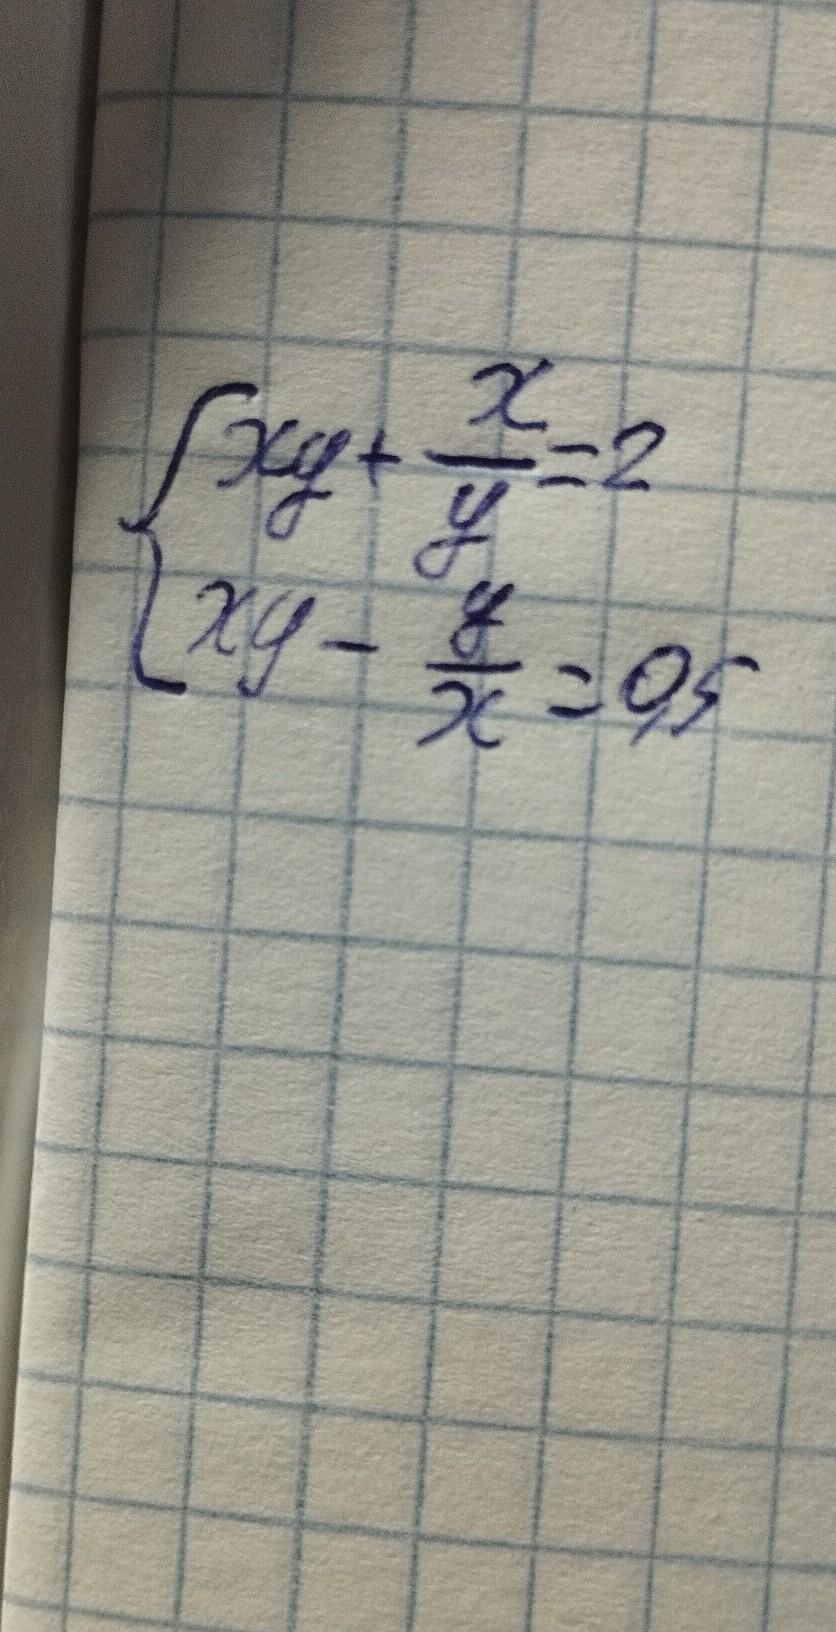 { xy + x/y = 2
xy - y/x = 0,5